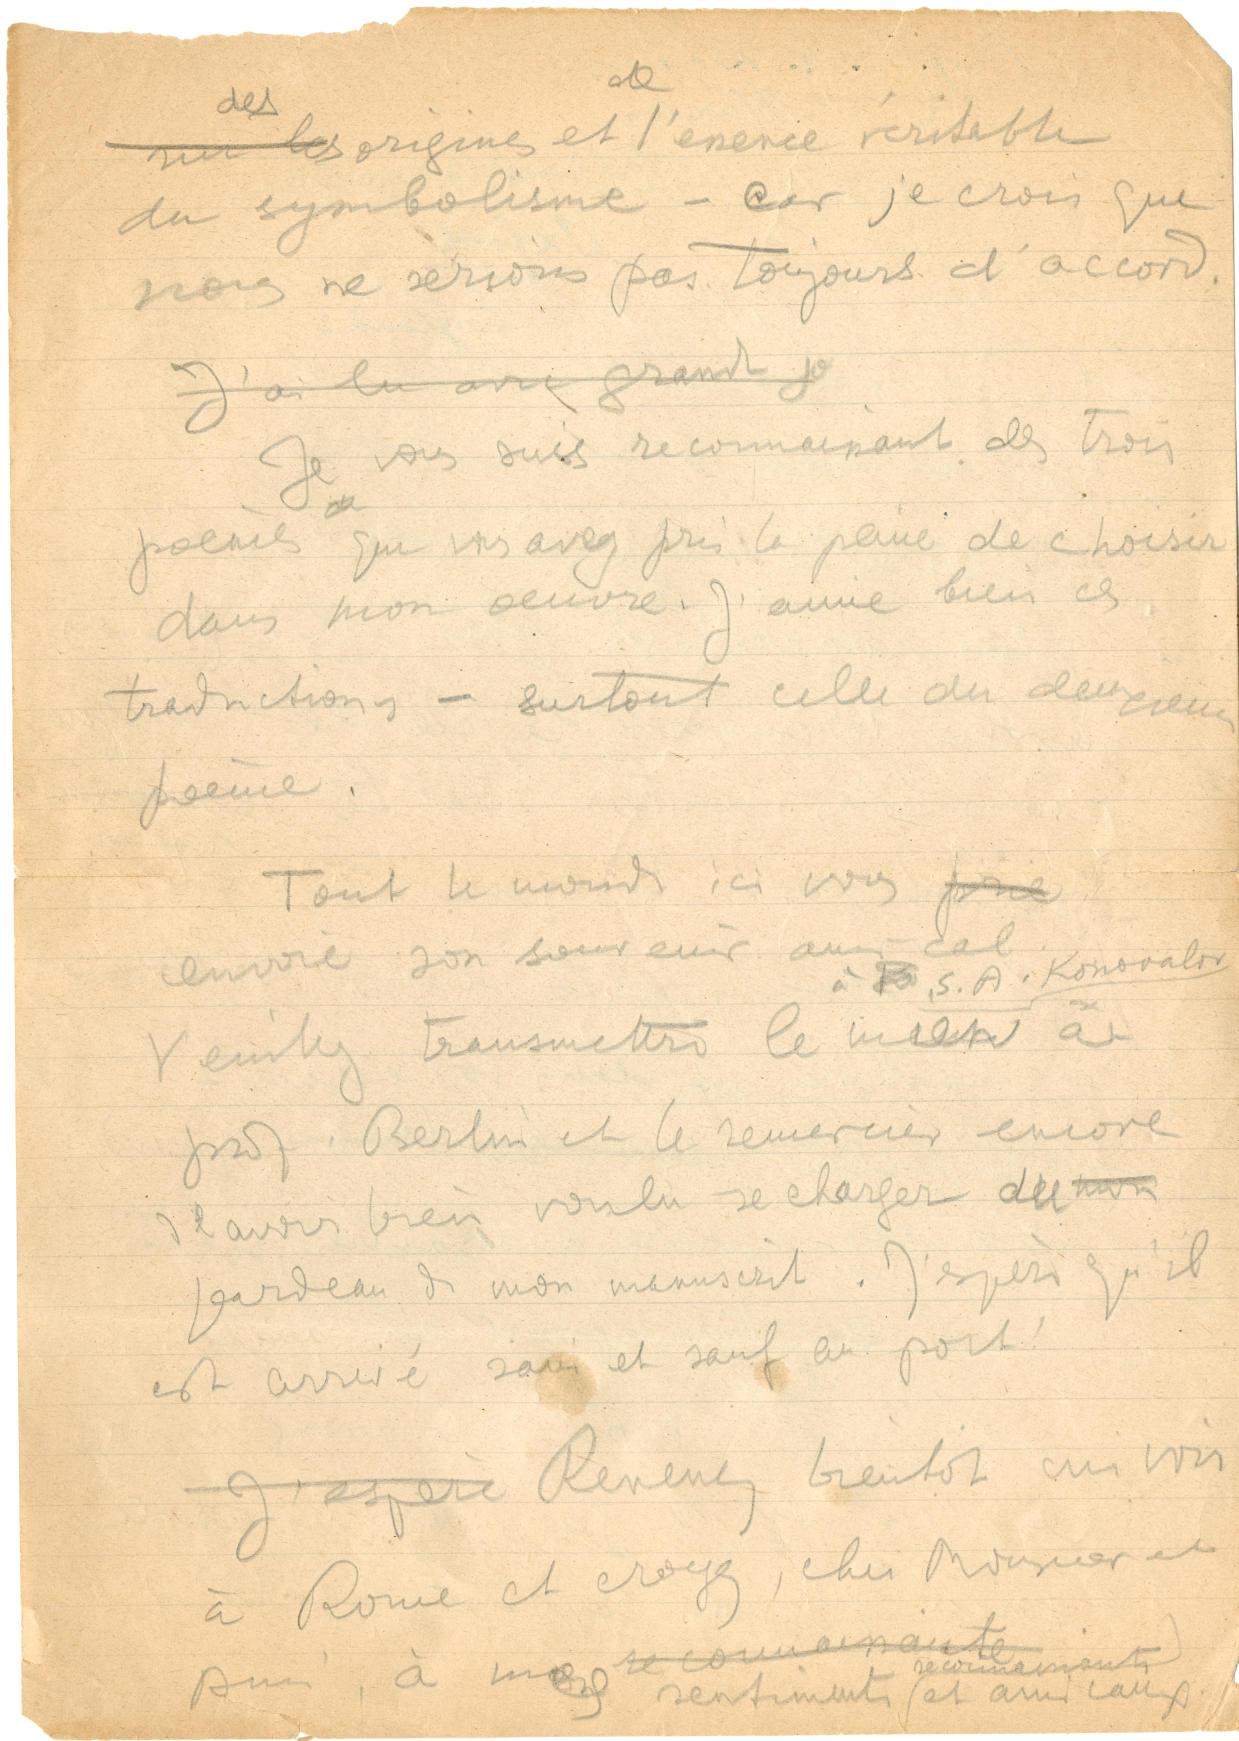 des de
sur les origines et l'essence véritable
du symbolisme - car je crois que
nous ne sérions pas toujours d'accord.
J'ai lu avec grand jo
Je vous suis reconnaissant des trois
poèmes que vous avez pris la peine de choisir
dans mon oeuvre. J'aime bien ces
traductions - surtout celle du deuxième
poème.
Tout le monde ici vous prie
envoie son souvenir amical
à S. A. Konovalov
Veuillez transmettre le mien au
prof. Berlin et le remercier encore
d'avoir bien voulu se charger du mon
fardeau de mon manuscrit. J'espère qu'il
est arrivé sain et sauf au port!
J'espère Revenez bientôt nous voir
à Rome et croyez, cher Monsieur et
ami, à mes reconnaissante
reconnaissants
sentiments et amicaux.